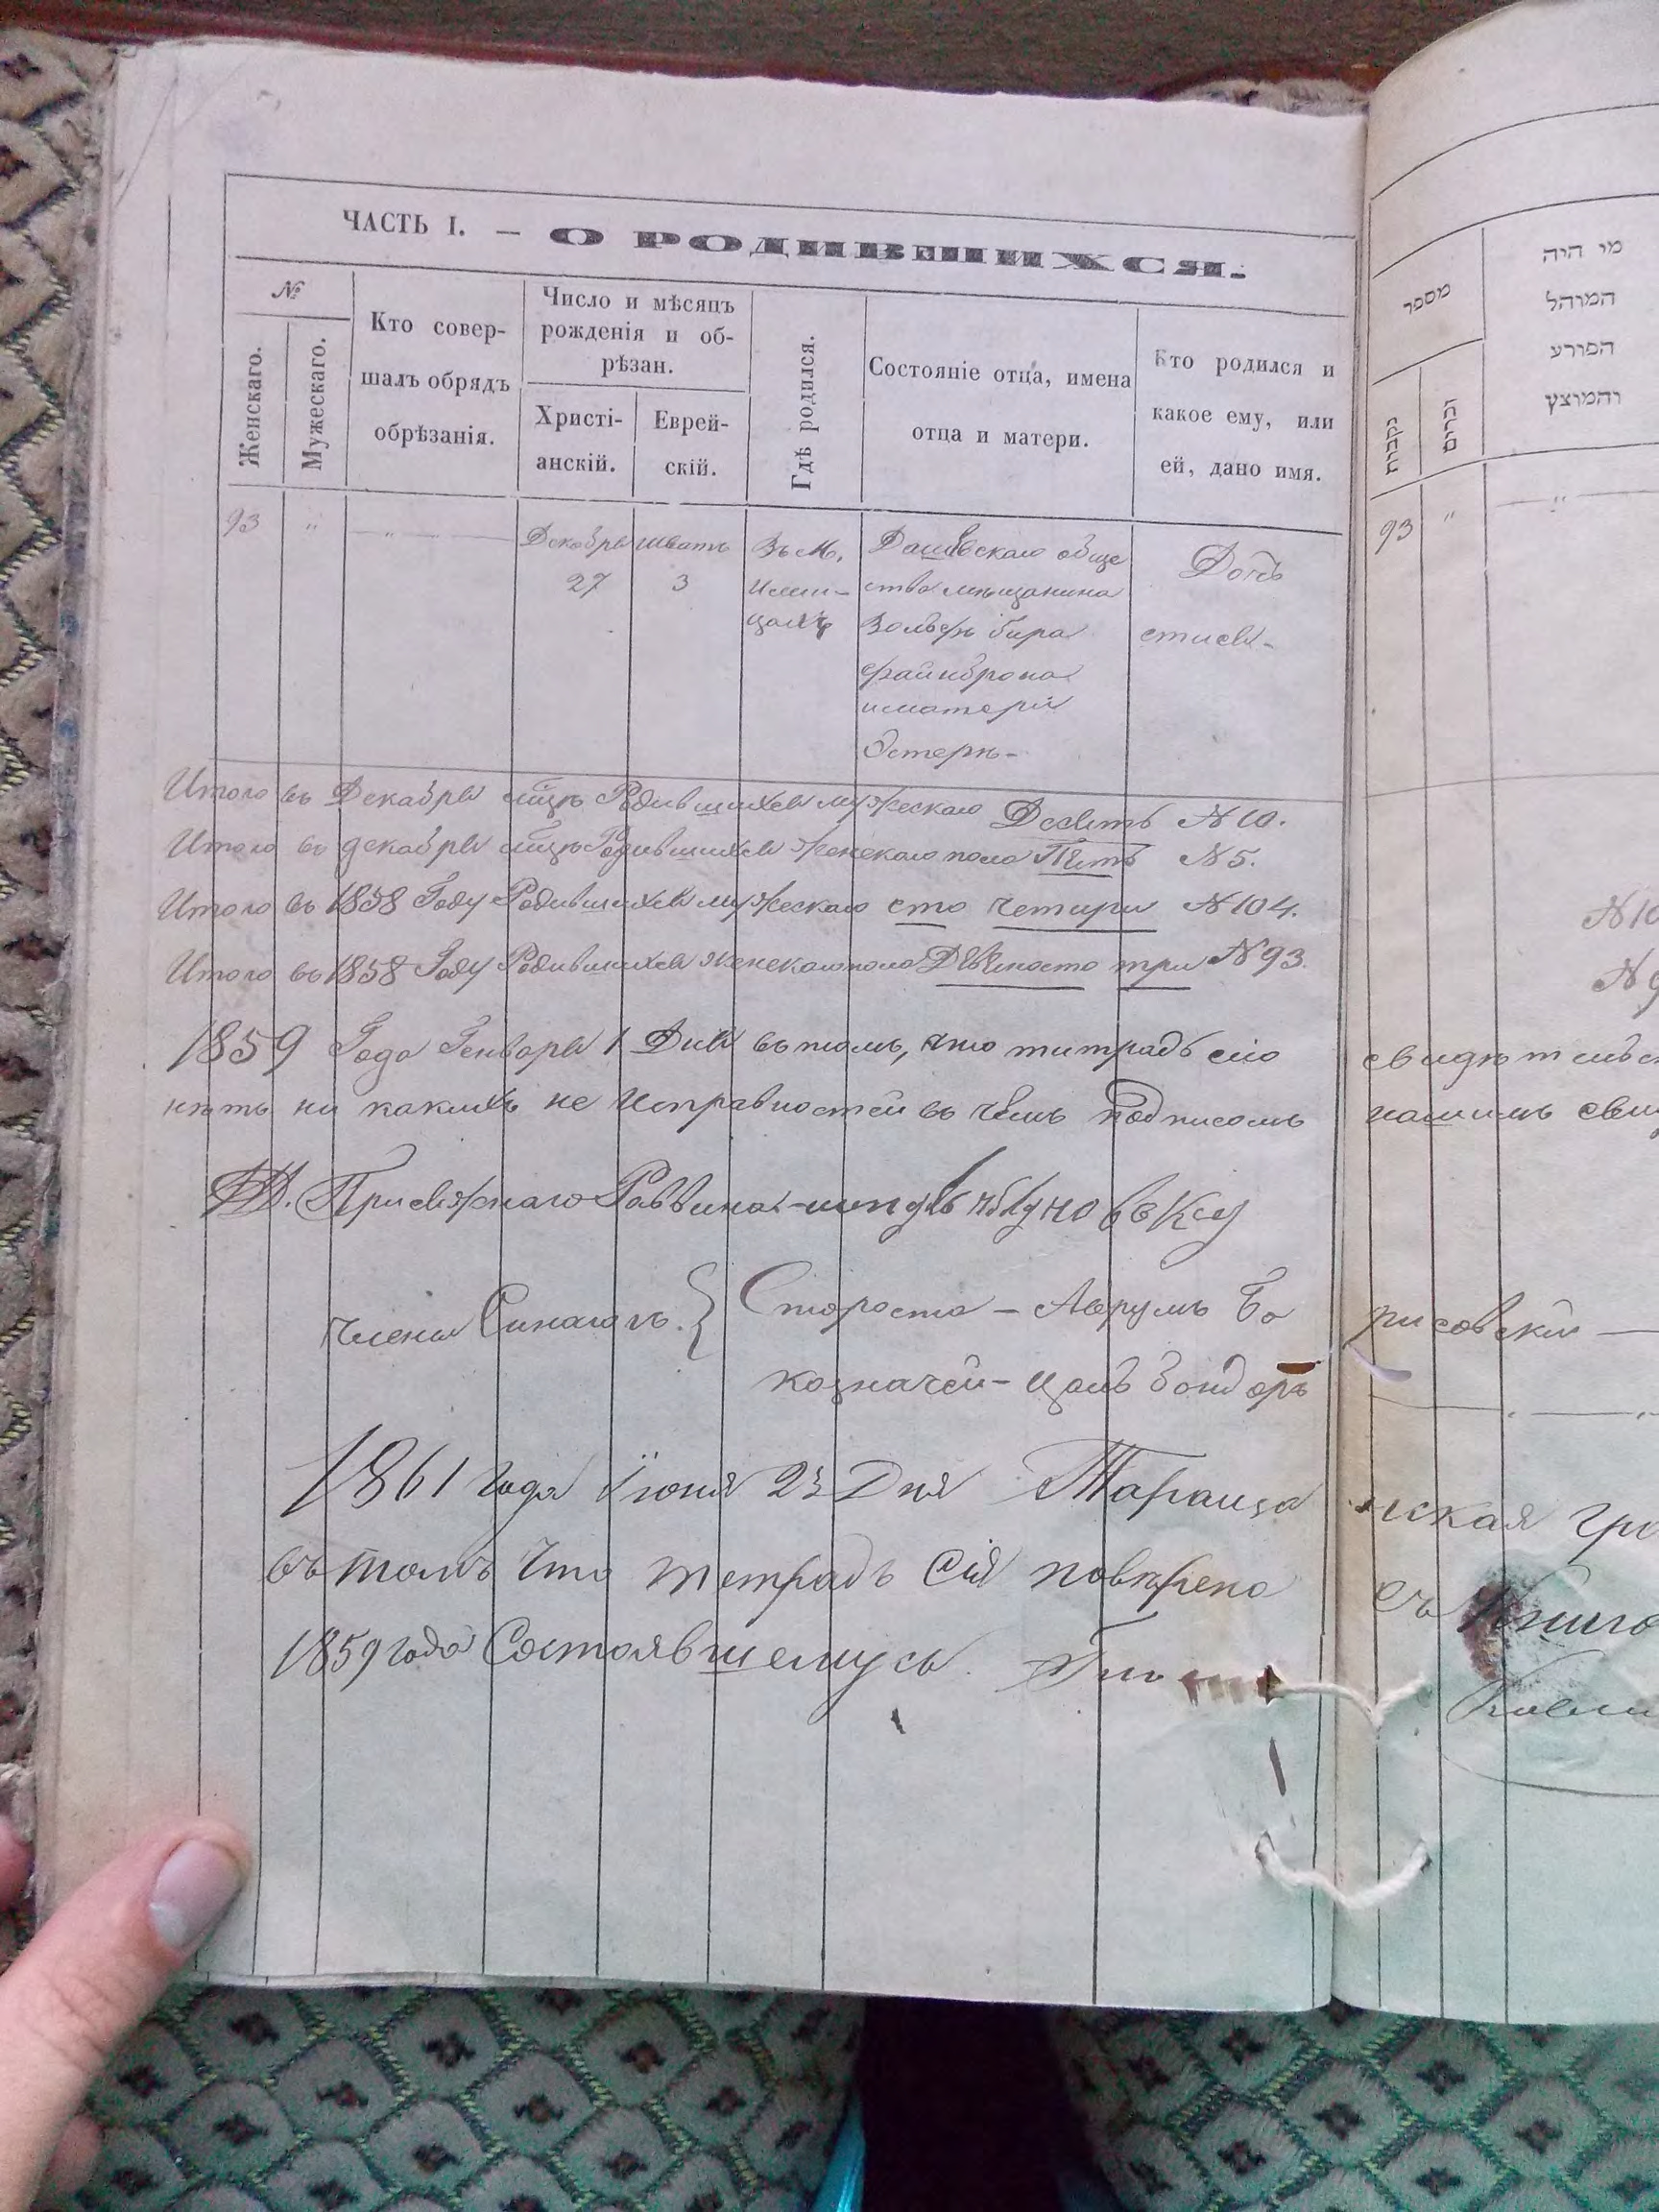 ЧАСТЬ I. — О РОДИВШИХСЯ.
№
Женскаго.
Мужескаго.
Кто совер-
шалъ обрядъ
обрѣзанія.
Число и мѣсяцъ
рожденія и об-
рѣзан.
Христі-
анскій.
Еврей-
скій.
Гдѣ родился.
Состояніе отца, имена
отца и матери.
Кто родился и
какое ему, или
ей, дано имя.
93 " — " —
Декабря
27
шватъ
3
Въ м.
Дашевскаго обще
ства мещанина
файнброна
иматери
Эстеръ-
Дочь
Итого въ Декабря мцѣ Родившихся мужескаго Десять N 10.
Итого въ декабря мцѣ Родившихся женскаго пола Пять N 5.
Итого въ 1858 Году Родившихся мужескаго сто четири N 104.
Итого въ 1858 Году Родившихся женскаго пола Девяносто три N 93.
1859 Года Генваря 1 Дня въ томъ, что титрадь сію
нѣтъ ни какихъ не Исправностей въ чемъ подписомъ
Присяжнаго Раввина
члены Синагогъ. { Староста – Аврумъ Бо
козначей –
1861 года Іюня 23 Дня Тараща
въ томъ что тетрадь Сія повѣрена
1859 года Состоявшемуся.
מספר
נקבות
זכרים
מי היה
המוהל
הפורע
והמוצץ
93 " — " —
N 10
N 9
нашимъ
рисовскій —
нская гр
съ книго